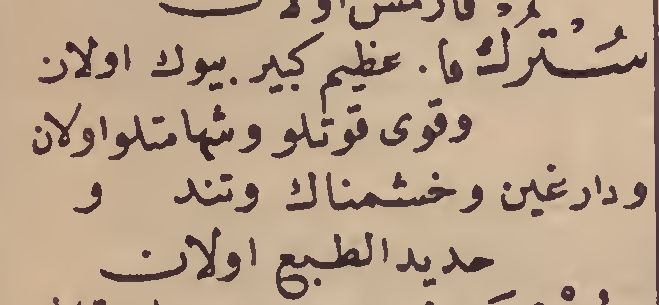 سُتُرْك فا. عظيم كبير بيوك اولان
وقوى قوتلو وشهامتلو اولان
ودارغين وخشمناك وتند و
حديد الطبع اولان